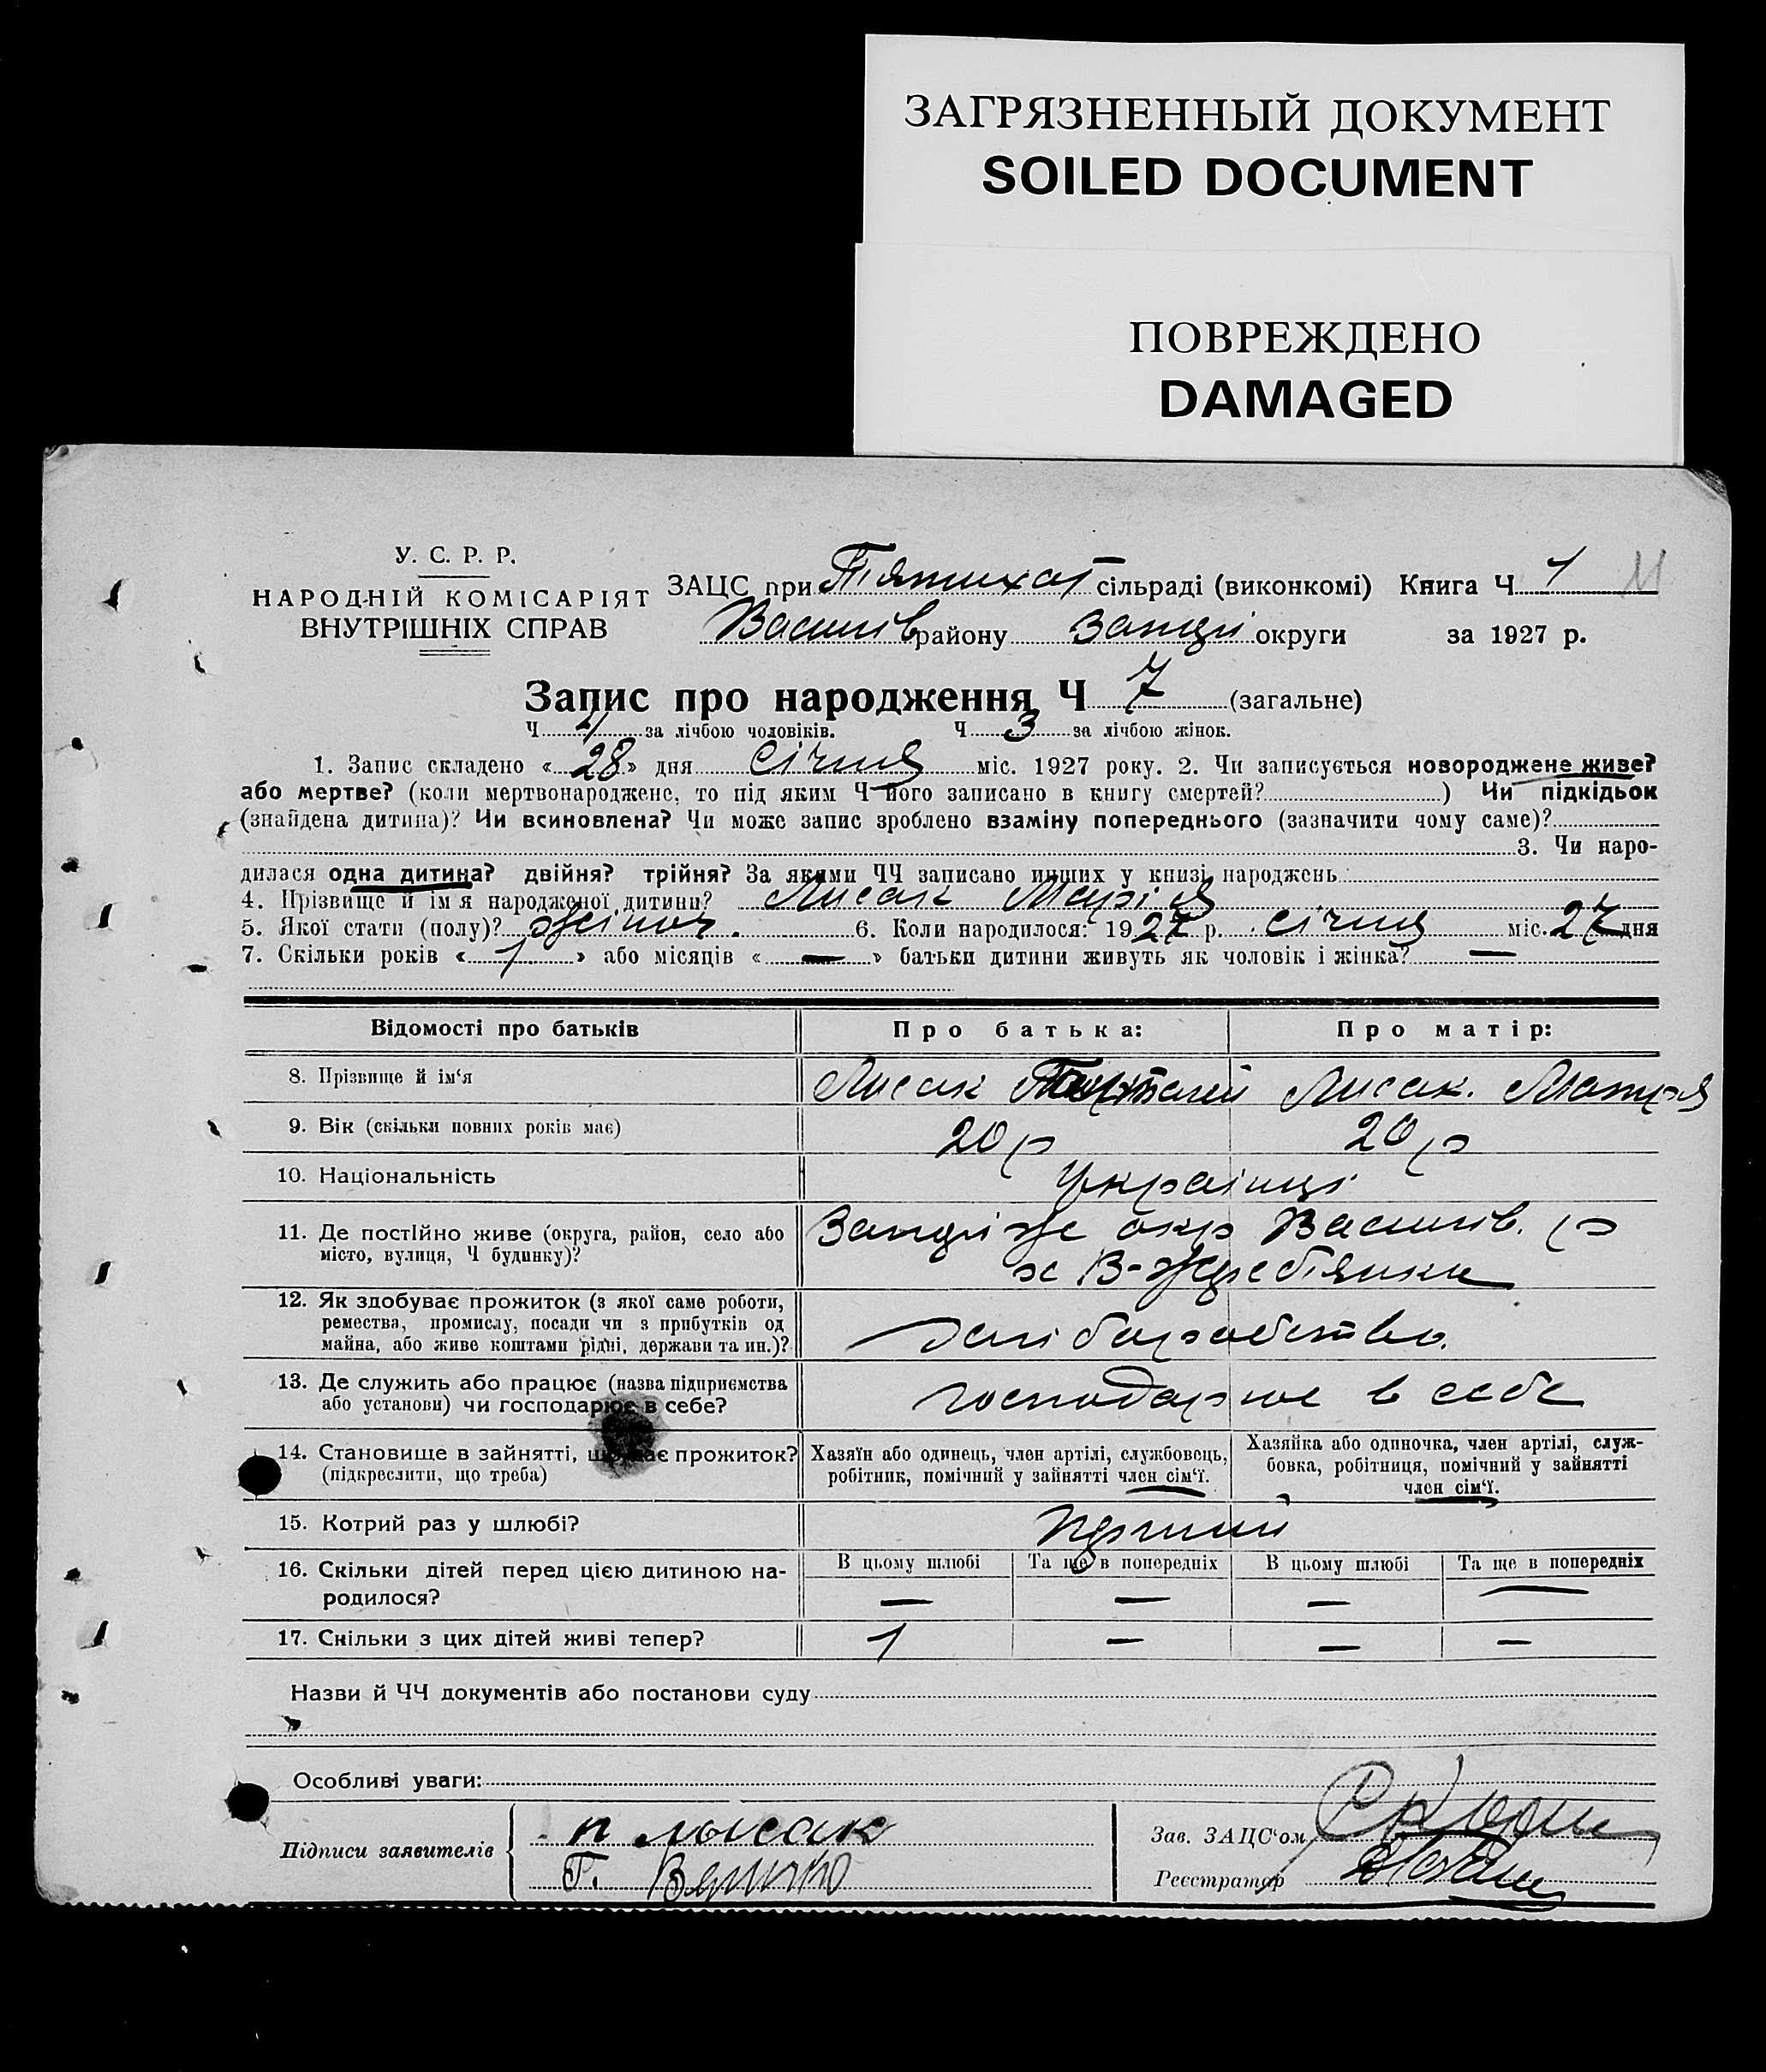 ЗАГРЯЗНЕННЫЙ ДОКУМЕНТ
SOILED DOCUMENT
ПОВРЕЖДЕНО
DAMAGED
У. С. Р. Р.
НАРОДНІЙ КОМІСАРІЯТ
ВНУТРІШНІХ СПРАВ
ЗАЦС при Пятихат сільраді (виконкомі) Книга Ч 1 11
Василів району округи за 1927 р.
Запис про народження Ч 7 (загальне)
Ч 4 за лічбою чоловіків. Ч 3 за лічбою жінок.
1. Запис складено « 28 » дня січня міс. 1927 року. 2. Чи записується новороджене живе?
або мертве? (коли мертвонароджене, то під яким Ч його записано в книгу смертей? ) Чи підкідьок
(знайдена дитина)? Чи всиновлена? Чи може запис зроблено взаміну попереднього (зазначити чому саме)?
3. Чи наро-
дилася одна дитина? двійня? трійня? За якими ЧЧ записано инших у книзі народжень
4. Прізвище й ім'я народженої дитини? Лисак Марія
5. Якої стати (полу)? жіноч. 6. Коли народилося: 1927 р. січня міс. 27 дня
7. Скільки років « 1 » або місяців « — » батьки дитини живуть як чоловік і жінка? —
Відомості про батьків Про батька: Про матір:
8. Прізвище й ім'я Лисак Лисак. Мотря
9. Вік (скільки повних років має) 20 р 20 р
10. Національність Українці
11. Де постійно живе (округа, район, село або місто, вулиця, Ч будинку)?
окр Василів. р
х В-Жребтянки
12. Як здобуває прожиток (з якої саме роботи,
ремества, промислу, посади чи з прибутків од
майна, або живе коштами рідні, держави та ин.)?
хліборобство.
13. Де служить або працює (назва підприємства
або установи) чи господарює в себе?
господарює в себе
14. Становище в зайнятті, що дає прожиток?
(підкреслити, що треба)
Хазяїн або одинець, член артілі, службовець,
робітник, помічний у зайнятті член сім'ї.
Хазяйка або одиночка, член артілі, служ-
бовка, робітниця, помічний у зайнятті
член сім'ї.
15. Котрий раз у шлюбі? перший
16. Скільки дітей перед цією дитиною на-
родилося?
В цьому шлюбі Та ще в попередніх В цьому шлюбі Та ще в попередніх
— — — —
17. Скільки з цих дітей живі тепер? 1 — — —
Назви й ЧЧ документів або постанови суду
Особливі уваги:
Підписи заявителів п лысак
Г. Величко
Зав. ЗАЦС'ом
Реєстратор